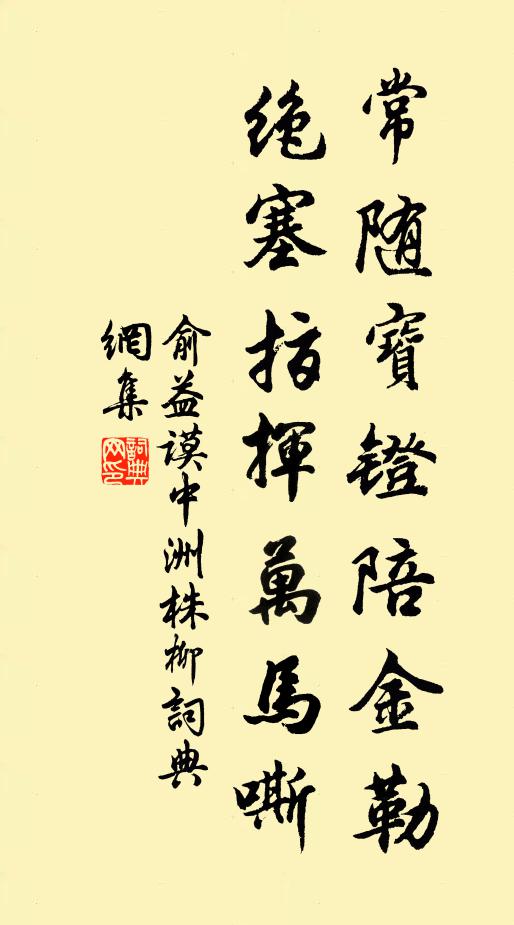 常随寶鐙陪金勒
绝塞指揮萬馬嘶
俞益謨中洲株柳詞典
網集
詞典
网印